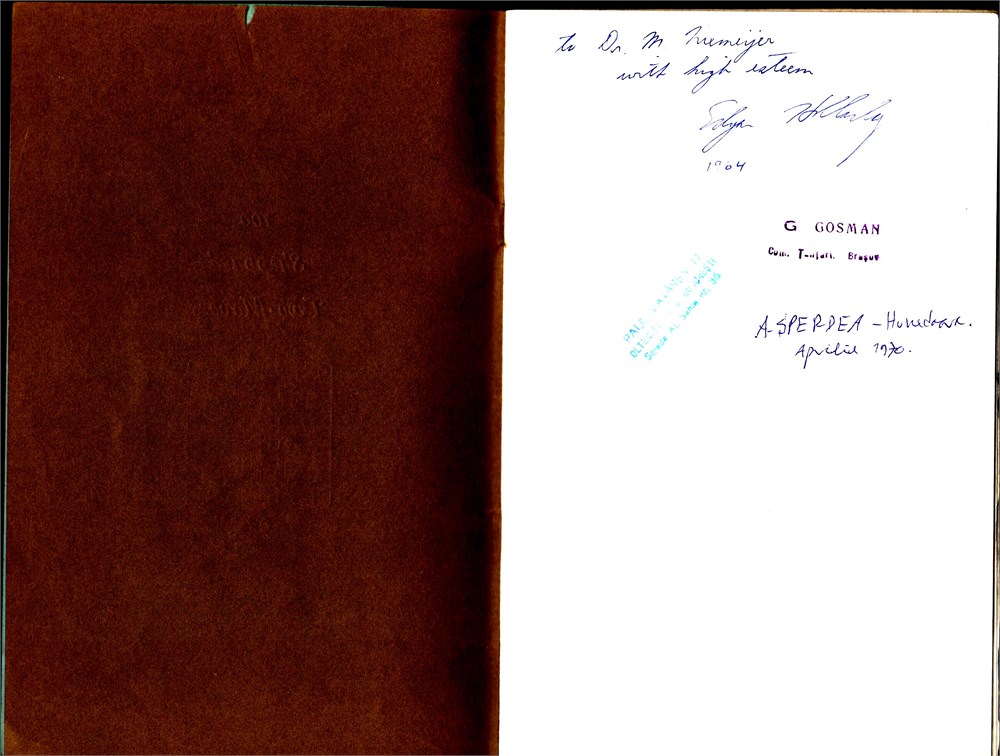 to Dr. M. Niemeijer
with high esteem
Edgar Holladay
1964
G GOSMAN
Com. Brașov
PALE
OLTE
Strada
A. SPERDEA – Hunedoara.
Aprilie 1970.